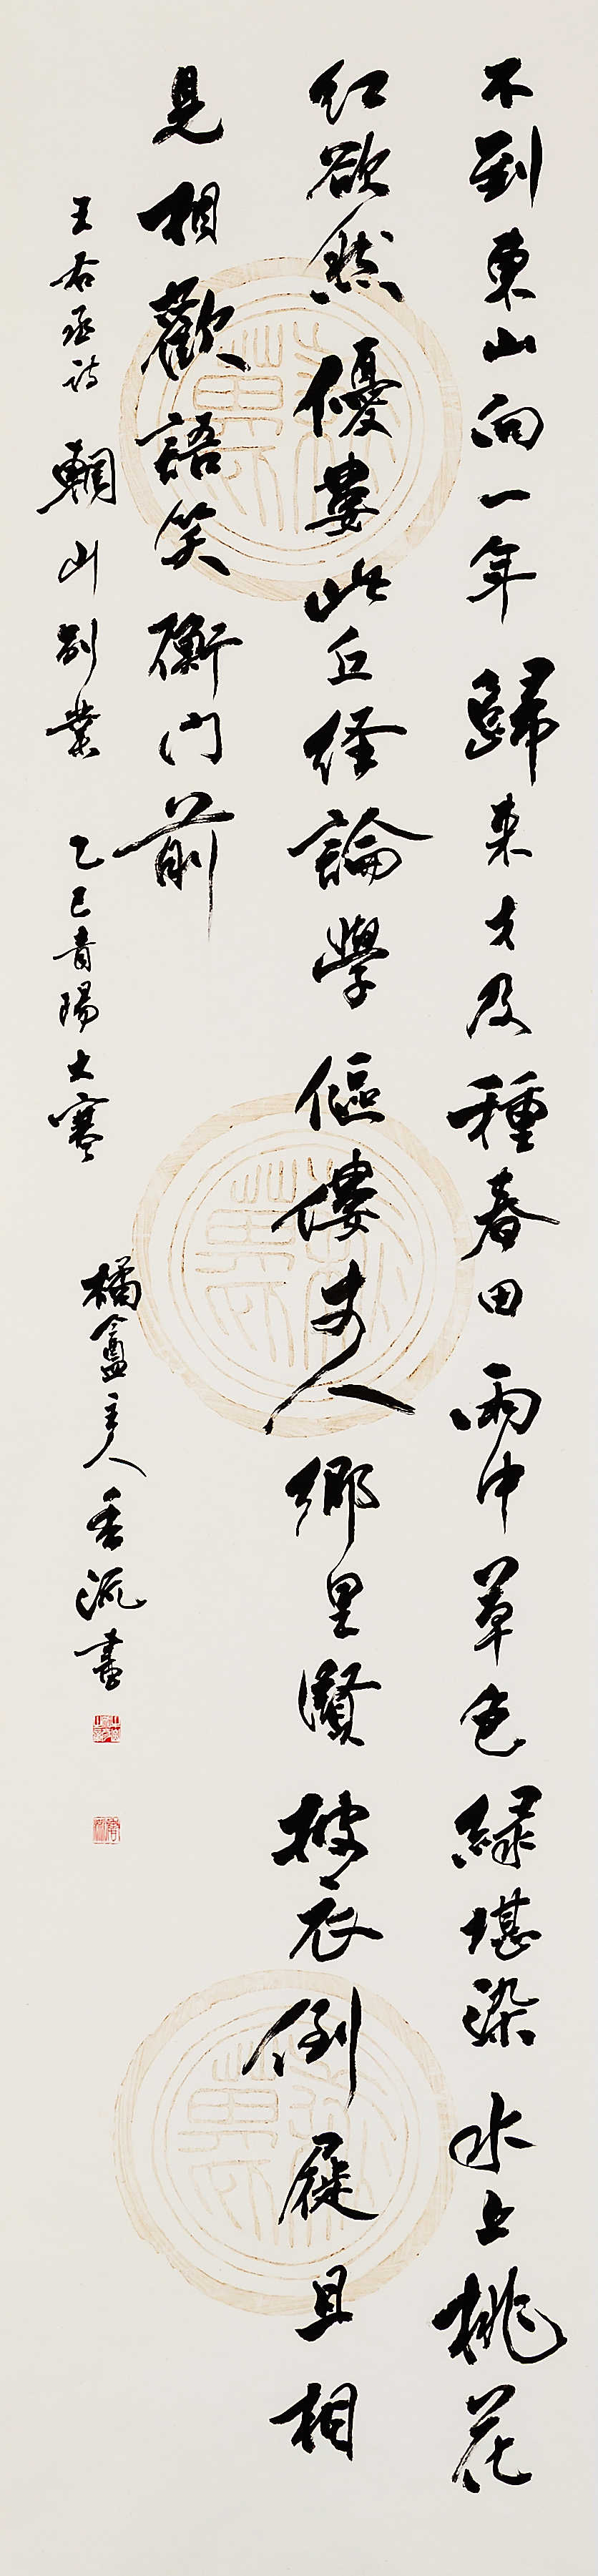 不到東山向一年歸来才及種春田雨中草色緑堪染水上桃花
紅欲然優婁比丘経論學傴僂丈人鄉里賢披衣倒屣且相
見相歡語笑衡门前
王右丞诗輞川別業乙巳青陽大寒
橘盦主人香流書